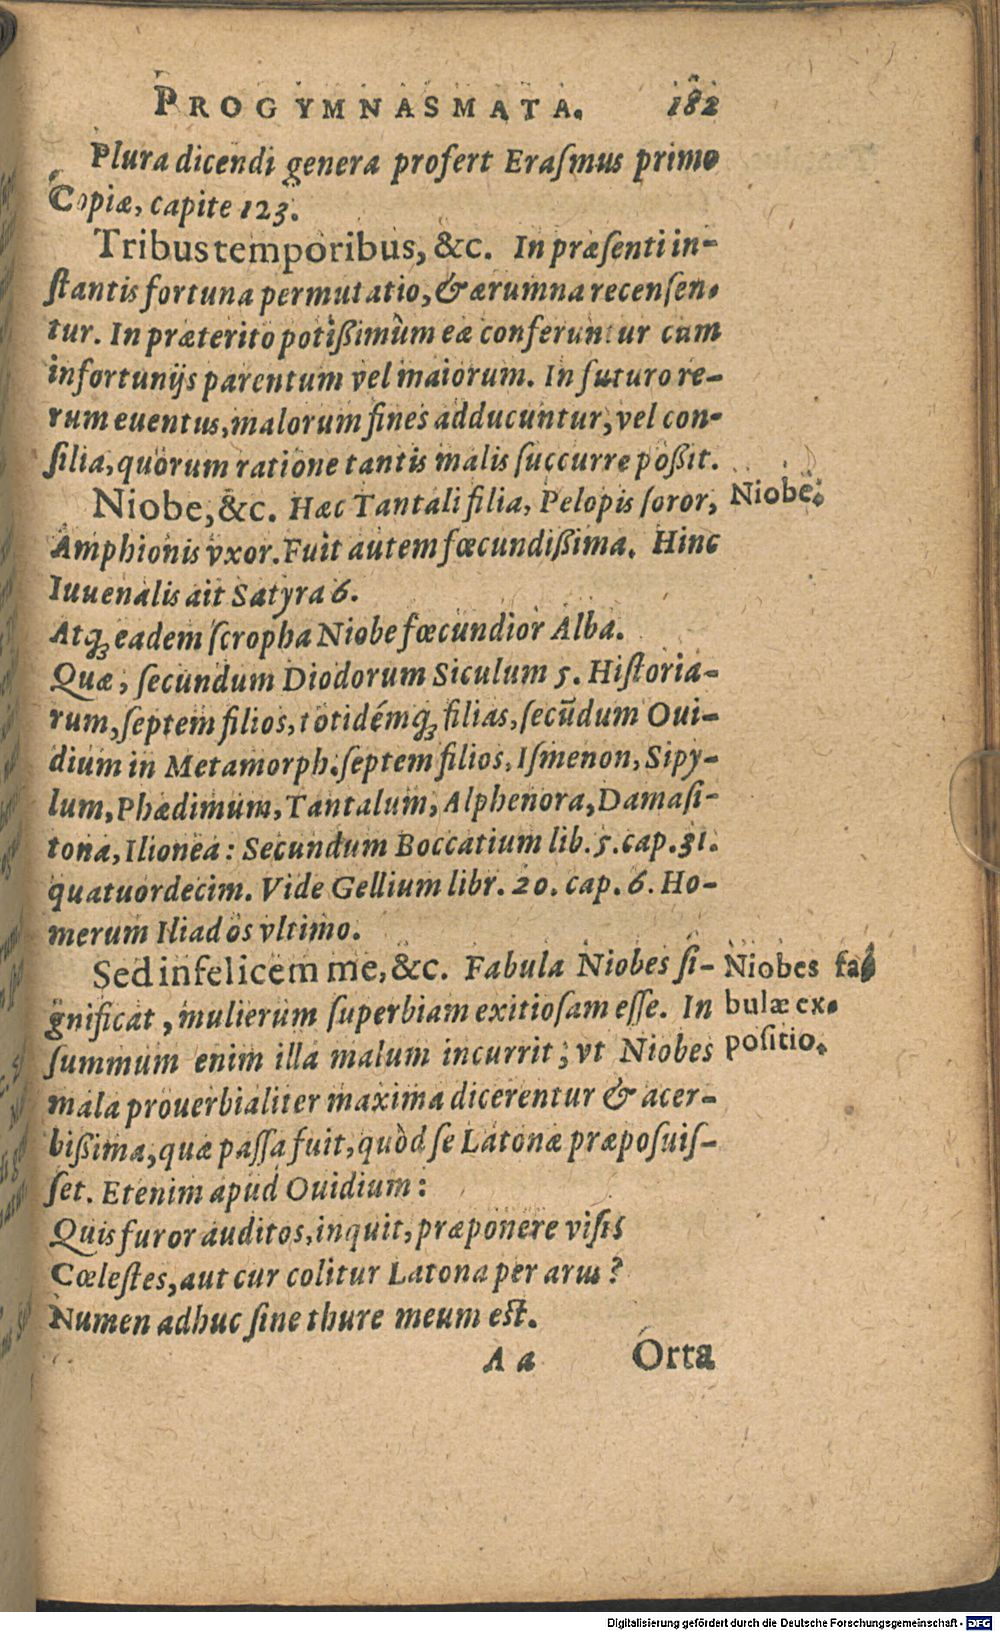 PROGYMNASMATA. 182
Plura dicendi genera profert Eraſmus primo
Copiæ, capite 123.
Tribus temporibus, &c. In præſenti in-
ſtantis fortuna permutatio, & ærumna recenſen-
tur. In præterito potißimùm eæ conferuntur cum
infortunijs parentum vel maiorum. In futuro re-
rum euentus, malorum fines adducuntur, vel con-
ſilia, quorum ratione tantis malis ſuccurre poßit.
Niobe, &c. Hæc Tantali filia, Pelopis ſoror,
Niobe.
Amphionis vxor. Fuit autem fœcundißima. Hinc
Iuuenalis ait Satyra 6.
Atqꝫ eadem ſcropha Niobe fœcundior Alba.
Quæ, ſecundum Diodorum Siculum 5. Hiſtoria-
rum, ſeptem filios, totidémqꝫ filias, ſecūdum Oui-
dium in Metamorph. ſeptem filios, Iſmenon, Sipy-
lum, Phædimum, Tantalum, Alphenora, Damaſi-
tona, Ilionea: Secundum Boccatium lib. 5. cap. 31.
quatuordecim. Vide Gellium libr. 20. cap. 6. Ho-
merum Iliados vltimo.
Sed infelicem me, &c. Fabula Niobes ſi-
gnificat, mulierum ſuperbiam exitioſam eſſe. In
ſummum enim illa malum incurrit; vt Niobes
Niobes fa-
bulæ ex-
poſitio.
mala prouerbialiter maxima dicerentur & acer-
bißima, quæ paſſa fuit, quòd ſe Latonæ præpoſuiſ-
ſet. Etenim apud Ouidium:
Quis furor auditos, inquit, præponere viſis
Cœleſtes, aut cur colitur Latona per aras?
Numen adhuc ſine thure meum eſt.
A a Orta
Digitalisierung gefördert durch die Deutsche Forschungsgemeinschaft - DFG